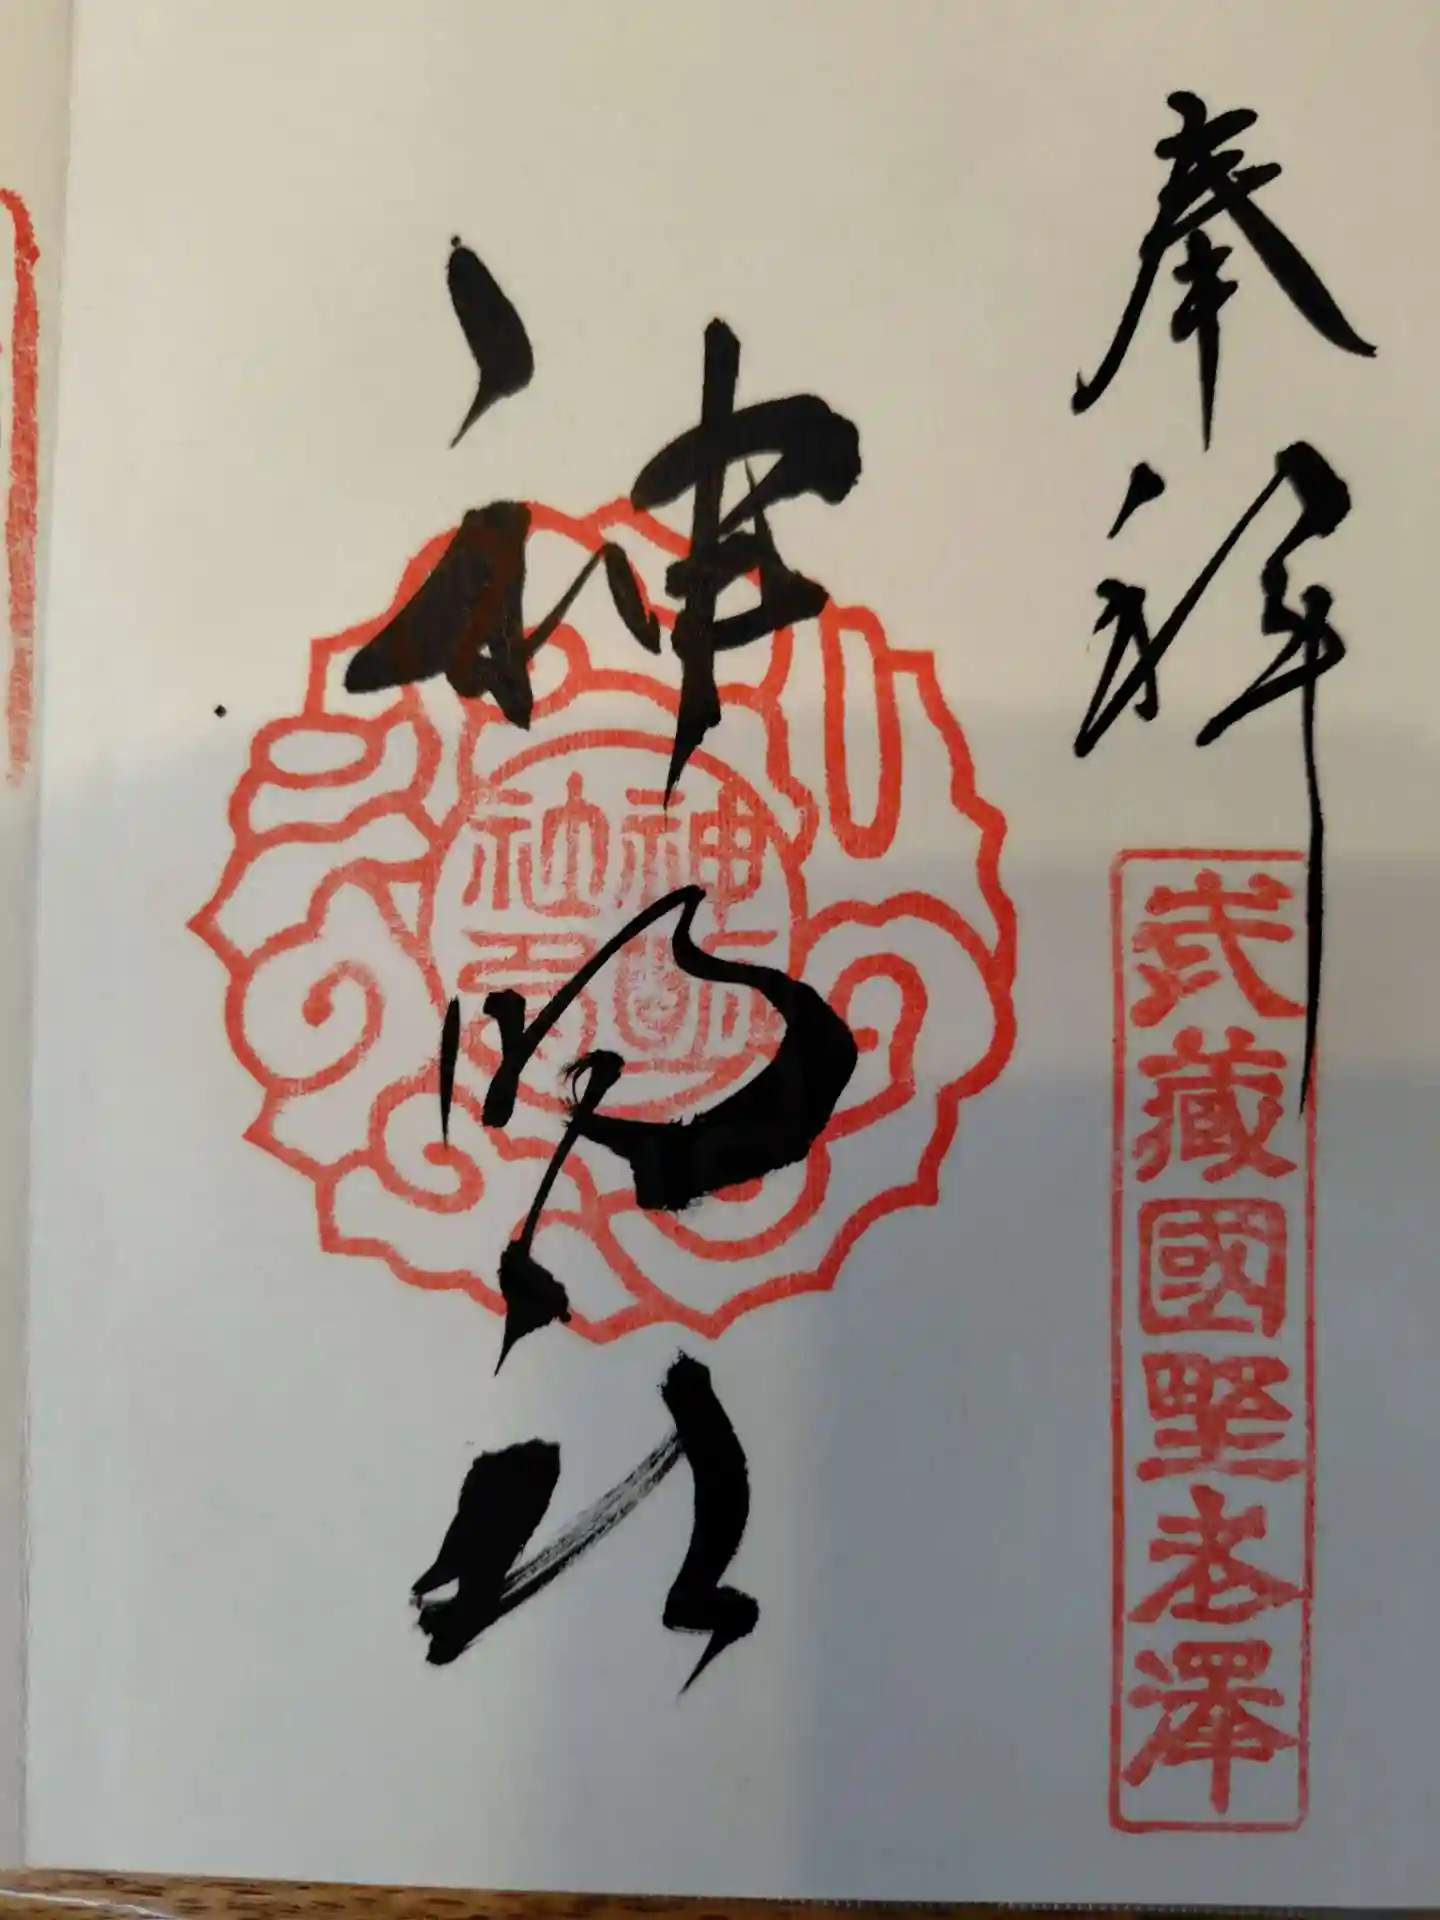 奉拝
武藏國野老澤
神明社
神明
社